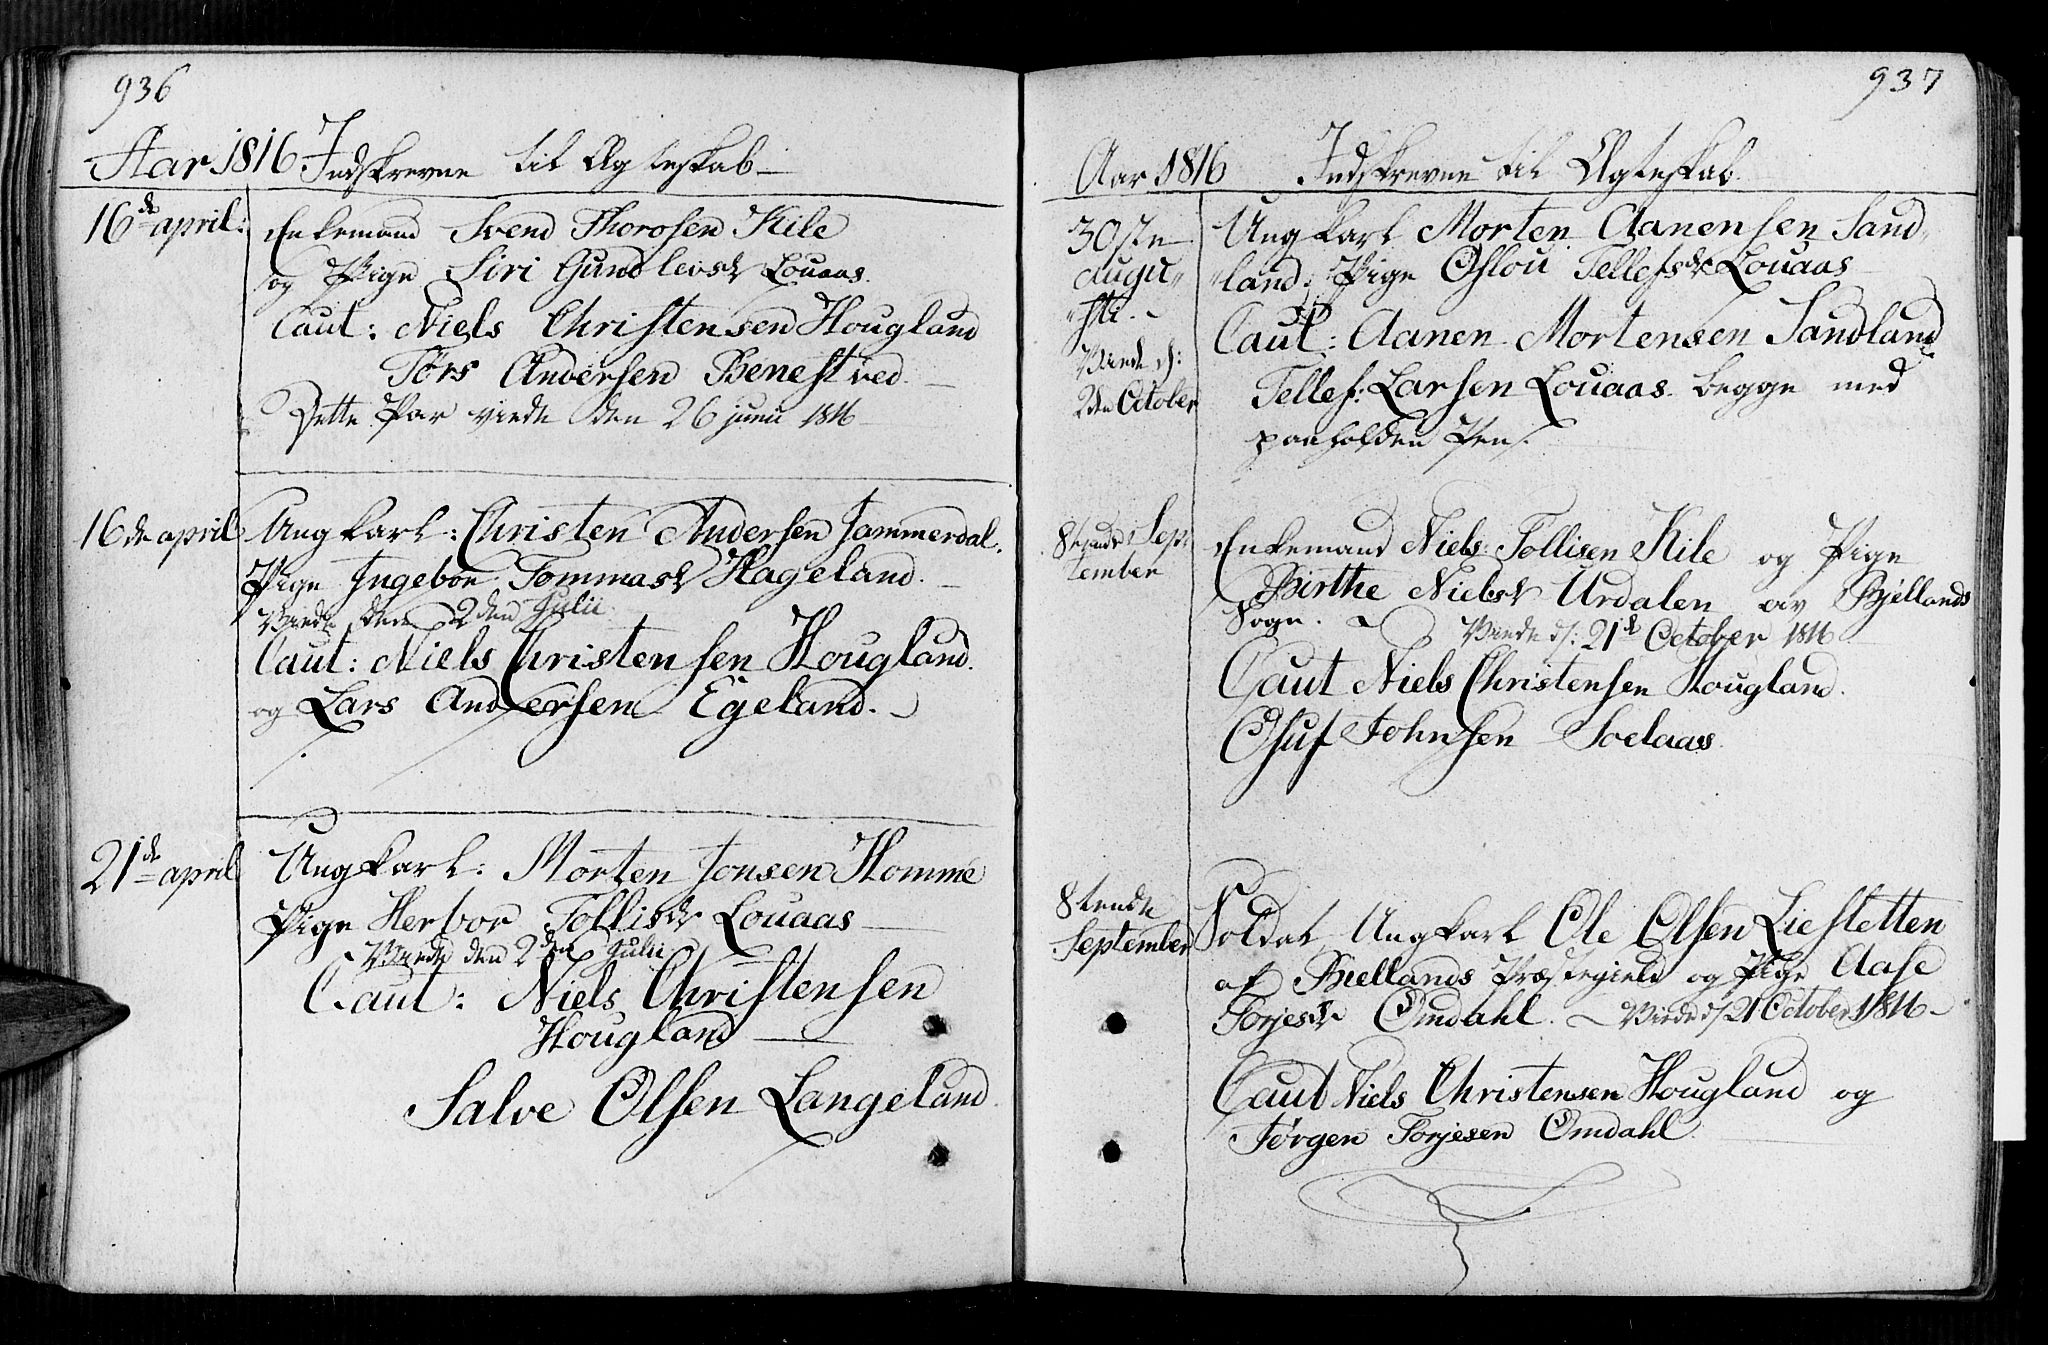 936
Aar 1816 Indskrevne til Ægteskab
16de april: Enkemand Svend Thorosen Kile
og Pige Siri Gundlevsdr Louaas.
Caut: Niels Christensen Hougland
Tørs Andersen Benestved.
Dette Par viede den 26 junii 1816
16de april Ungkarl: Christen Andersen Jammerdal.
Pige Ingebor Tommasdr Hageland.
Viede den 2den Julii.
Caut: Niels Christensen Hougland.
og Lars Andersen Egeland.
21de april Ungkarl: Morten Jonsen Homme
Pige Herbor Tollisdr Louaas
Viede den 2den Julii
Caut: Niels Christensen
Hougland
Salve Olsen Langeland.
937
Aar 1816 Indskrevne til Ægteskab.
30ste Ungkarl Morten Aanensen Sand„
augu„ „land. Pige Oslou Tellefsdr Louaas
„sti. Caut: Aanen Mortensen Sandland
Viede d: Tellef: Larsen Louaas. begge med
2den October paaholden Pen.
8tende Sep„ Enkemand Niels Tollisen Kile og Pige
tember Birthe Nielsdr Urdalen av Bjellands
Sogn. Viede d: 21de October 1816
Caut Niels Christensen Hougland.
Osuf Johnsen Soelaas.
8tende Soldat, Ungkarl Ole Olsen Liestetten
September af Biellands Præstegield og Pige Aase
Torjesdr Omdahl. Viede d 21 October 1816
Caut Niels Christensen Hougland og
Jørgen Torjesen Omdahl.